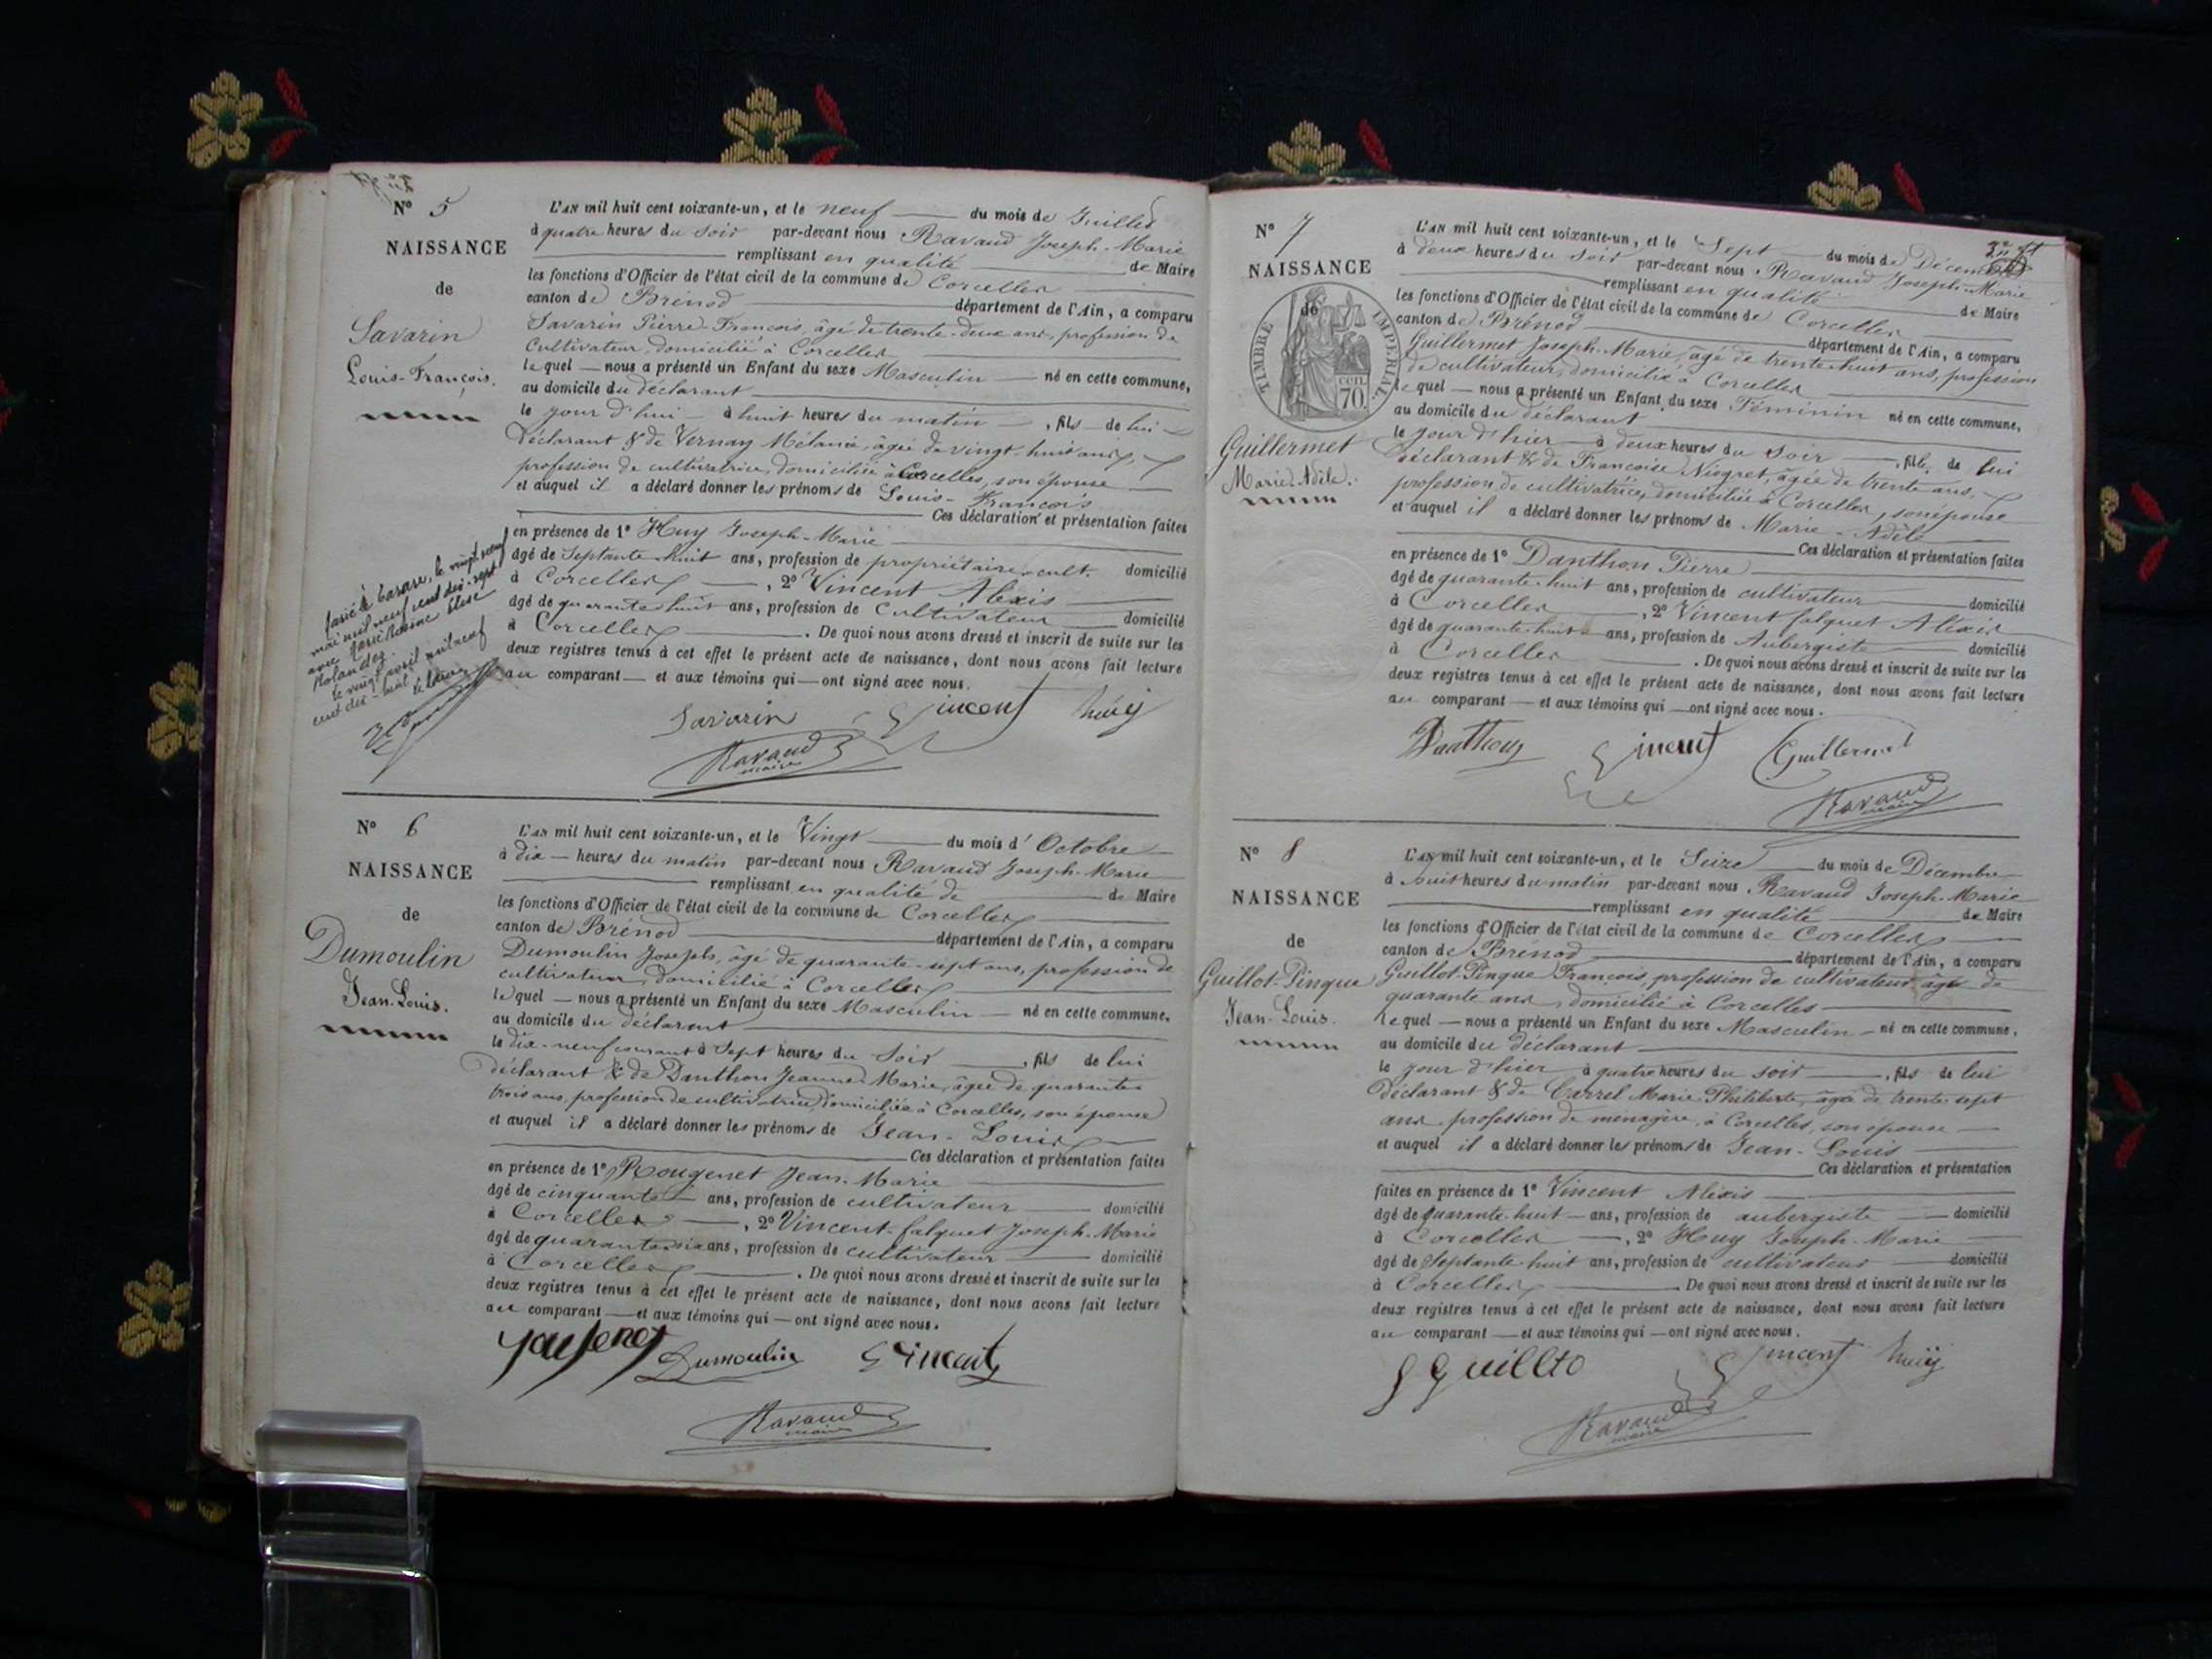 N° 5
NAISSANCE
de
Savarin
Louis-François.
L'AN mil huit cent soixante-un, et le neuf du mois de Juillet
à quatre heures du soir par-devant nous Ravaud Joseph-Marie
remplissant en qualité de Maire
les fonctions d'Officier de l'état civil de la commune de Corcelles
canton de Brénod département de l'Ain, a comparu
Savarin Pierre-François, âgé de trente-deux ans, profession de
Cultivateur, domicilié à Corcelles
lequel nous a présenté un Enfant du sexe Masculin né en cette commune,
au domicile du déclarant
le jour d'hui à huit heures du matin, fils de lui
Déclarant & de Vernay Mélanie, âgée de vingt-huit ans,
profession de cultivatrice, domiciliée à Corcelles, son épouse
et auquel il a déclaré donner les prénoms de Louis-François
Ces déclaration et présentation faites
en présence de 1° Huy Joseph-Marie
âgé de Septante-huit ans, profession de propriétaire-cult. domicilié
à Corcelles, 2° Vincent Alexis
âgé de quarante-huit ans, profession de Cultivateur domicilié
à Corcelles. De quoi nous avons dressé et inscrit de suite sur les
deux registres tenus à cet effet le présent acte de naissance, dont nous avons fait lecture
au comparant et aux témoins qui ont signé avec nous.
le vingt
mai mil neuf cent dix-sept
avec
le vingt avril mil neuf
cent dix-huit
Savarin Vincent huiy
Ravaud
maire
N° 6
NAISSANCE
de
Dumoulin
Jean-Louis.
L'AN mil huit cent soixante-un, et le Vingt du mois d'Octobre
à dix heures du matin par-devant nous Ravaud Joseph-Marie
remplissant en qualité de de Maire
les fonctions d'Officier de l'état civil de la commune de Corcelles
canton de Brénod département de l'Ain, a comparu
Dumoulin Joseph, âgé de quarante-sept ans, profession de
cultivateur, domicilié à Corcelles
lequel nous a présenté un Enfant du sexe Masculin né en cette commune.
au domicile du déclarant
le dix-neuf courant à Sept heures du Soir, fils de lui
déclarant & de Danthon Jeanne-Marie, âgée de quarante
trois ans, profession de cultivatrice, domiciliée à Corcelles, son épouse
et auquel il a déclaré donner les prénoms de Jean-Louis
Ces déclaration et présentation faites
en présence de 1° Rougenet Jean-Marie
âgé de cinquante ans, profession de cultivateur domicilié
à Corcelles, 2° Vincent-falquet Joseph-Marie
âgé de quarante six ans, profession de cultivateur domicilié
à Corcelles. De quoi nous avons dressé et inscrit de suite sur les
deux registres tenus à cet effet le présent acte de naissance, dont nous avons fait lecture
au comparant et aux témoins qui ont signé avec nous.
Dumoulin Vincent
Ravaud
maire
N° 7
NAISSANCE
de
TIMBRE IMPÉRIAL.
cen.
70.
Guillermet
Marie-Adèle.
L'AN mil huit cent soixante-un, et le Sept du mois de Décembre
à deux heures du soir par-devant nous Ravaud Joseph-Marie
remplissant en qualité de Maire
les fonctions d'Officier de l'état civil de la commune de Corcelles
canton de Brénod département de l'Ain, a comparu
Guillermet Joseph-Marie, âgé de trente-huit ans, profession
de cultivateur, domicilié à Corcelles
lequel nous a présenté un Enfant du sexe Féminin né en cette commune,
au domicile du déclarant
le jour d'hier à deux heures du soir, fille de lui
déclarant & de Françoise Niogret, âgée de trente ans,
profession de cultivatrice, domiciliée à Corcelles, son épouse
et auquel il a déclaré donner les prénoms de Marie-Adèle
Ces déclaration et présentation faites
en présence de 1° Danthon Pierre
âgé de quarante-huit ans, profession de cultivateur domicilié
à Corcelles, 2° Vincent falquet Alexis
âgé de quarante-huit ans, profession de Aubergiste domicilié
à Corcelles. De quoi nous avons dressé et inscrit de suite sur les
deux registres tenus à cet effet le présent acte de naissance, dont nous avons fait lecture
au comparant et aux témoins qui ont signé avec nous.
Danthon Vincent Guillermet
Ravaud
maire
N° 8
NAISSANCE
de
Guillot-Pinque
Jean-Louis.
L'AN mil huit cent soixante-un, et le Seize du mois de Décembre
à huit heures du matin par-devant nous Ravaud Joseph-Marie
remplissant en qualité de Maire
les fonctions d'Officier de l'état civil de la commune de Corcelles
canton de Brénod département de l'Ain, a comparu
Guillot-Pinque François, profession de cultivateur âgé de
quarante ans, domicilié à Corcelles
lequel nous a présenté un Enfant du sexe Masculin né en cette commune.
au domicile du déclarant
le jour d'hier à quatre heures du soir, fils de lui
Déclarant & de Carrel Marie-Philiberte, âgée de trente-sept
ans, profession de menagère, à Corcelles, son épouse
et auquel il a déclaré donner les prénoms de Jean-Louis
Ces déclaration et présentation
faites en présence de 1° Vincent Alexis
âgé de quarante-huit ans, profession de aubergiste domicilié
à Corcelles, 2° Huy Joseph-Marie
âgé de Septante-huit ans, profession de cultivateur domicilié
à Corcelles. De quoi nous avons dressé et inscrit de suite sur les
deux registres tenus à cet effet le présent acte de naissance, dont nous avons fait lecture
au comparant et aux témoins qui ont signé avec nous.
Vincent huiy
Ravaud
maire